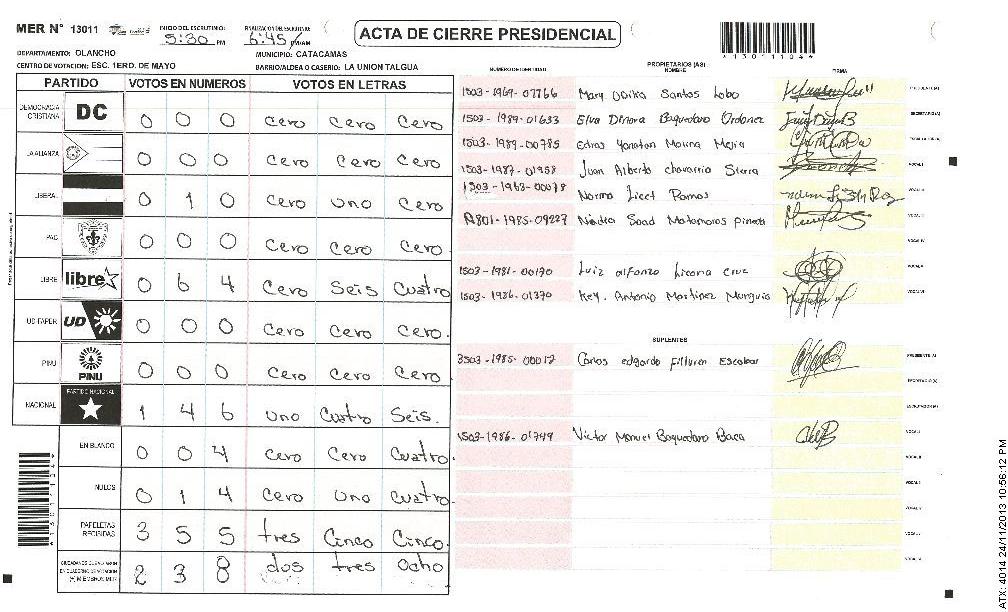 MER N° 13011
INICIO DEL ESCRUTINIO: 5:30 PM
FINALIZACION DEL ESCRUTINIO: 6:45 P/M/AM
ACTA DE CIERRE PRESIDENCIAL
*13011104*
DEPARTAMENTO: OLANCHO
MUNICIPIO: CATACAMAS
CENTRO DE VOTACION: ESC. 1ERD. DE MAYO
BARRIO/ALDEA O CASERIO: LA UNION TALGUA
PARTIDO VOTOS EN NUMEROS VOTOS EN LETRAS
DEMOCRACIA CRISTIANA DC 0 0 0 Cero Cero Cero
LA ALIANZA 0 0 0 Cero Cero Cero
LIBERAL 0 1 0 Cero Uno Cero
PAC 0 0 0 Cero Cero Cero.
LIBRE libre 0 6 4 Cero Seis Cuatro
UD-FAPER UD 0 0 0 Cero Cero Cero.
PINU PINU 0 0 0 Cero Cero Cero.
NACIONAL PARTIDO NACIONAL 1 4 6 Uno Cuatro Seis.
EN BLANCO 0 0 4 Cero Cero Cuatro.
NULOS 0 1 4 Cero Uno Cuatro.
PAPELETAS RECIBIDAS 3 5 5 tres Cinco Cinco.
2 3 8 dos tres Ocho
NUMERO DE IDENTIDAD PROPIETARIOS (AS) NOMBRE FIRMA
1503-1969-07766 Santos Lobo PRESIDENTE (A)
1503-1989-01633 Elva Dinora Baquedano Ordonez SECRETARIO (A)
1503-1989-00785 Edras Yonatan Molina Mejia
1503-1987-01958 Juan Alberto chavarria Sierra VOCAL I
1503-1963-00078 Norma Licet Ramos VOCAL II
0801-1985-09227 Saad Matamoros Pineda VOCAL III
VOCAL IV
1503-1981-00170 Luiz alfonzo Licona Cruz VOCAL V
1503-1986-01370 Key. Antonio Martinez Munguia VOCAL VI
SUPLENTES
1503-1985-00017 Carlos edgardo Escobar PRESIDENTE (A)
SECRETARIO (A)
ESCRUTADOR (A)
1503-1986-01749 Victor Manuel Baquedano Baca VOCAL I
VOCAL II
ATX: 4014 24/11/2013 10:56:12 PM